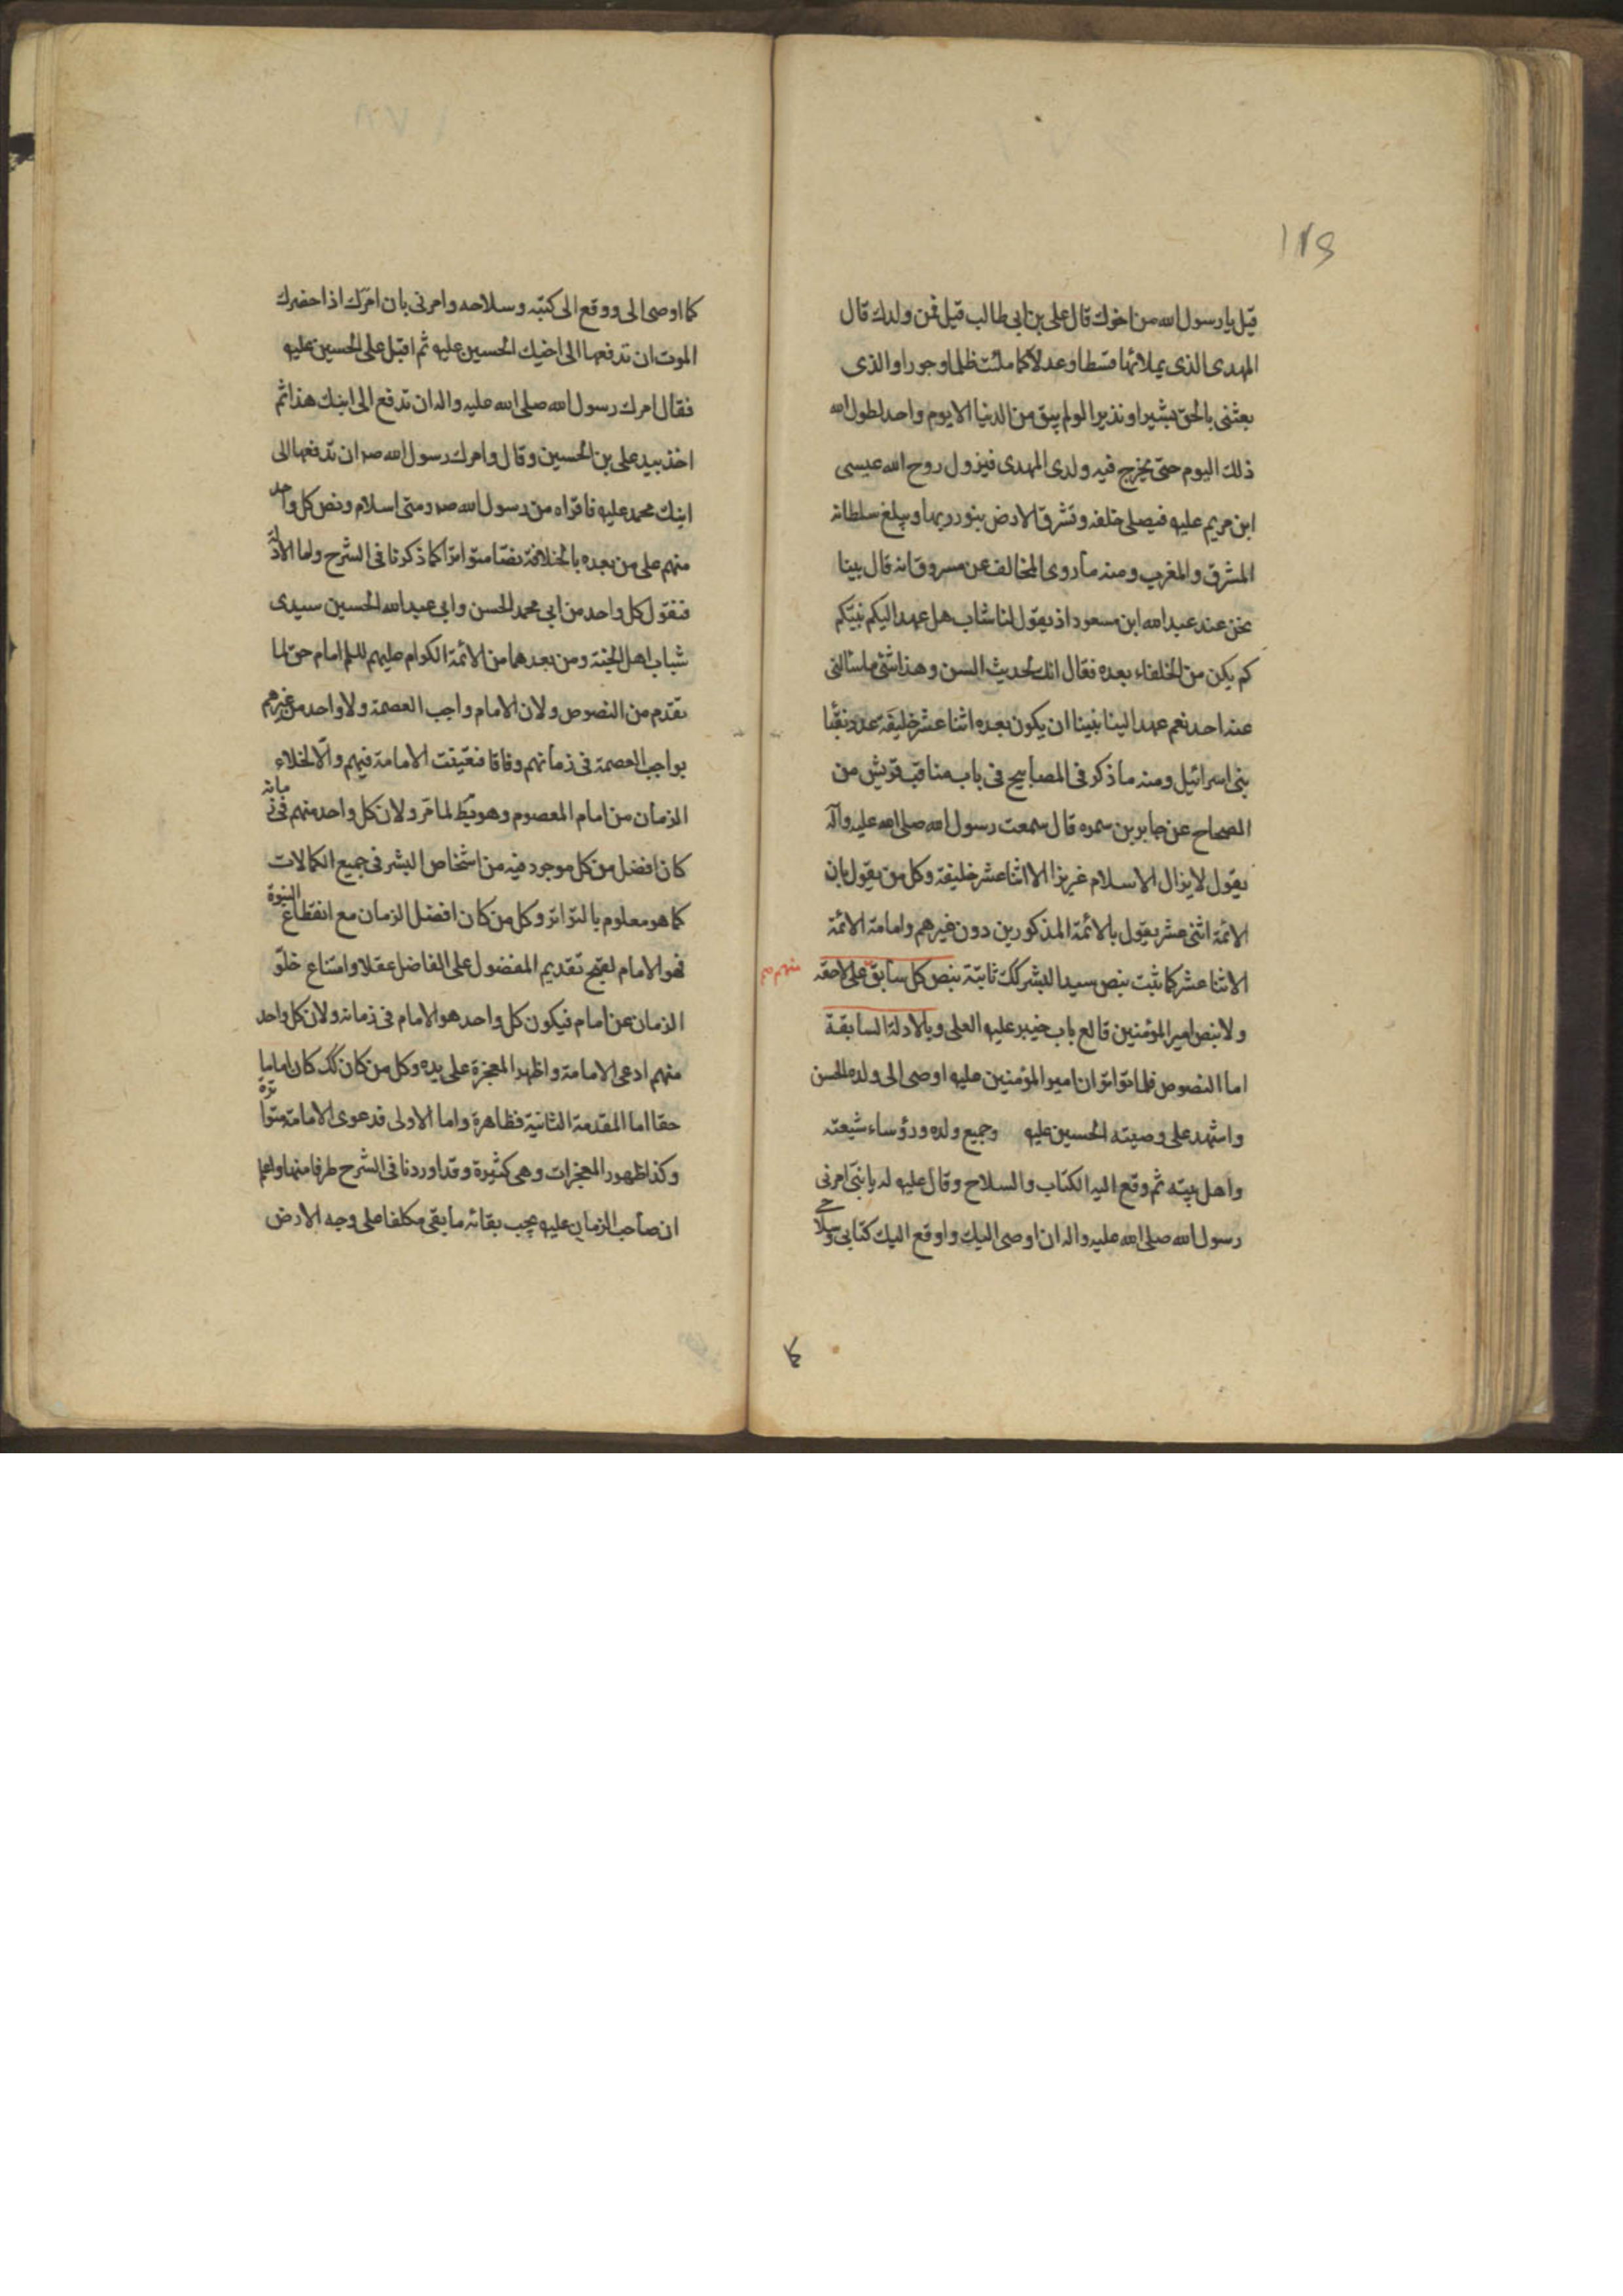 ١٢٥
قيل يا رسول الله من اخوك قال علي بن ابي طالب قيل فمن ولدك قال
المهدى الذى يملائها قسطا وعدلا كما ملئت ظلما وجورا والذى
بعثنى بالحق بشيرا ونذيرا لو لم يبق من الدنيا الا يوم واحد لطول الله
ذلك اليوم حتى يخرج فيه ولدى المهدى فينزول روح الله عيسى
ابن مريم عليه فيصلى خلفه وتشرق الارض بنور ربها ويبلغ سلطانه
المشرق والمغرب ومنه ما روى المخالف عن مسروق انه قال بينا
نحن عند عبد الله ابن مسعود اذ يقول لنا شاب هل عهد اليكم نبيكم
كم يكن من الخلفاء بعده فقال انك لحديث السن وهذا شئ ما سألنى
عنه احد نعم عهد الينا نبينا ان يكون بعده اثنا عشر خليفة عدد نقبا
بنى اسرائيل ومنه ما ذكر فى المصابيح فى باب مناقب قريش من
الصحاح عن جابر بن سمره قال سمعت رسول الله صلى الله عليه وآله
يقول لا يزال الاسلام عزيزا الا اثنا عشر خليفة وكل من يقول بان
الائمة اثنى عشر يقول بالائمة المذكورين دون غيرهم وامامة الائمة
الاثنا عشر كما ثبت بنص سيد البشر كك ثابتة بنص كل سابق على لاحقه منهم
ولا بنص امير المؤمنين قالع باب خيبر عليه العلى وبالادلة السابقة
اما النصوص فلما تواتر ان امير المؤمنين عليه اوصى الى ولده الحسن
واشهد على وصيته الحسين عليه وجميع ولده ورؤساء شيعته
واهل بيته ثم وقع اليه الكتاب والسلاح وقال عليه له يا بنى امرنى
رسول الله صلى الله عليه واله ان اوصى اليك واوقع اليك كتابى وسلاحى
كما
كما اوصى الى ووقع الى كتبه وسلاحه وامرنى بان امرك اذا حضرك
الموت ان تدفعها الى اخيك الحسين عليه ثم اقبل على الحسين عليه
فقال امرك رسول الله صلى الله عليه واله ان تدفع الى ابنك هذا ثم
اخذ بيد على بن الحسين وقال وامرك رسول الله صم ان تدفعها الى
ابنك محمد عليه فاقراه من رسول الله صم ومنى السلام ونص كل واحد
منهم على من بعده بالخلافة نصا متواترا كما ذكرنا فى الشرح واما الادلة
فنقول كل واحد من ابى محمد الحسن وابى عبد الله الحسين سيدى
شباب اهل الجنة ومن بعدهما من الائمة الكرام عليهم السلم امام حق لما
تقدم من النصوص ولان الامام واجب العصمة ولا واحد من غيرهم
بواجب العصمة فى زمانهم وفاقا فتعينت الامامة فيهم والا لخلاء
الزمان من امام المعصوم وهو بط لما مر ولان كل واحد منهم فى زمانه
كان افضل من كل موجود فيه من اشخاص البشر فى جميع الكمالات
كما هو معلوم بالتواتر وكل من كان افضل الزمان مع انقطاع النبوة
فهو الامام لقبح تقديم المفضول على الفاضل عقلا وامتناع خلو
الزمان عن امام فيكون كل واحد هو الامام فى زمانه ولان كل واحد
منهم ادعى الامامة واظهر المعجزة على يده وكل من كان كك كان اماما
حقا اما المقدمة الثانية فظاهرة واما الاولى فدعوى الامامة متواترة
وكذا ظهور المعجزات وهى كثيرة وقد اوردنا فى الشرح طرفا منها واعلم
ان صاحب الزمان عليه يجب بقائه ما بقى مكلفا على وجه الارض